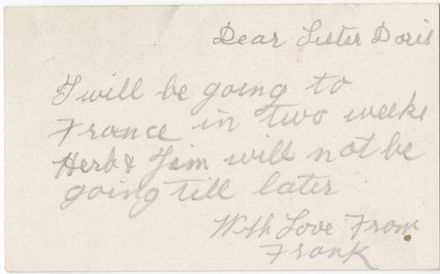 Dear Sister Doris
I will be going to
France in two weeks
Herb & Jim will not be
going till later
With Love From
Frank